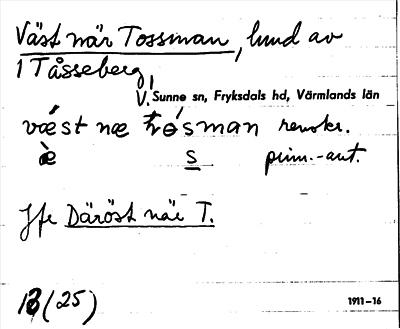 Väst när Tossman, lund av
1 Tåsseberg,
V. Sunne sn, Fryksdals hd, Värmlands län
væ̀st næ tósman
s
Jfr Däröst när T.
13 (25)
1911-16